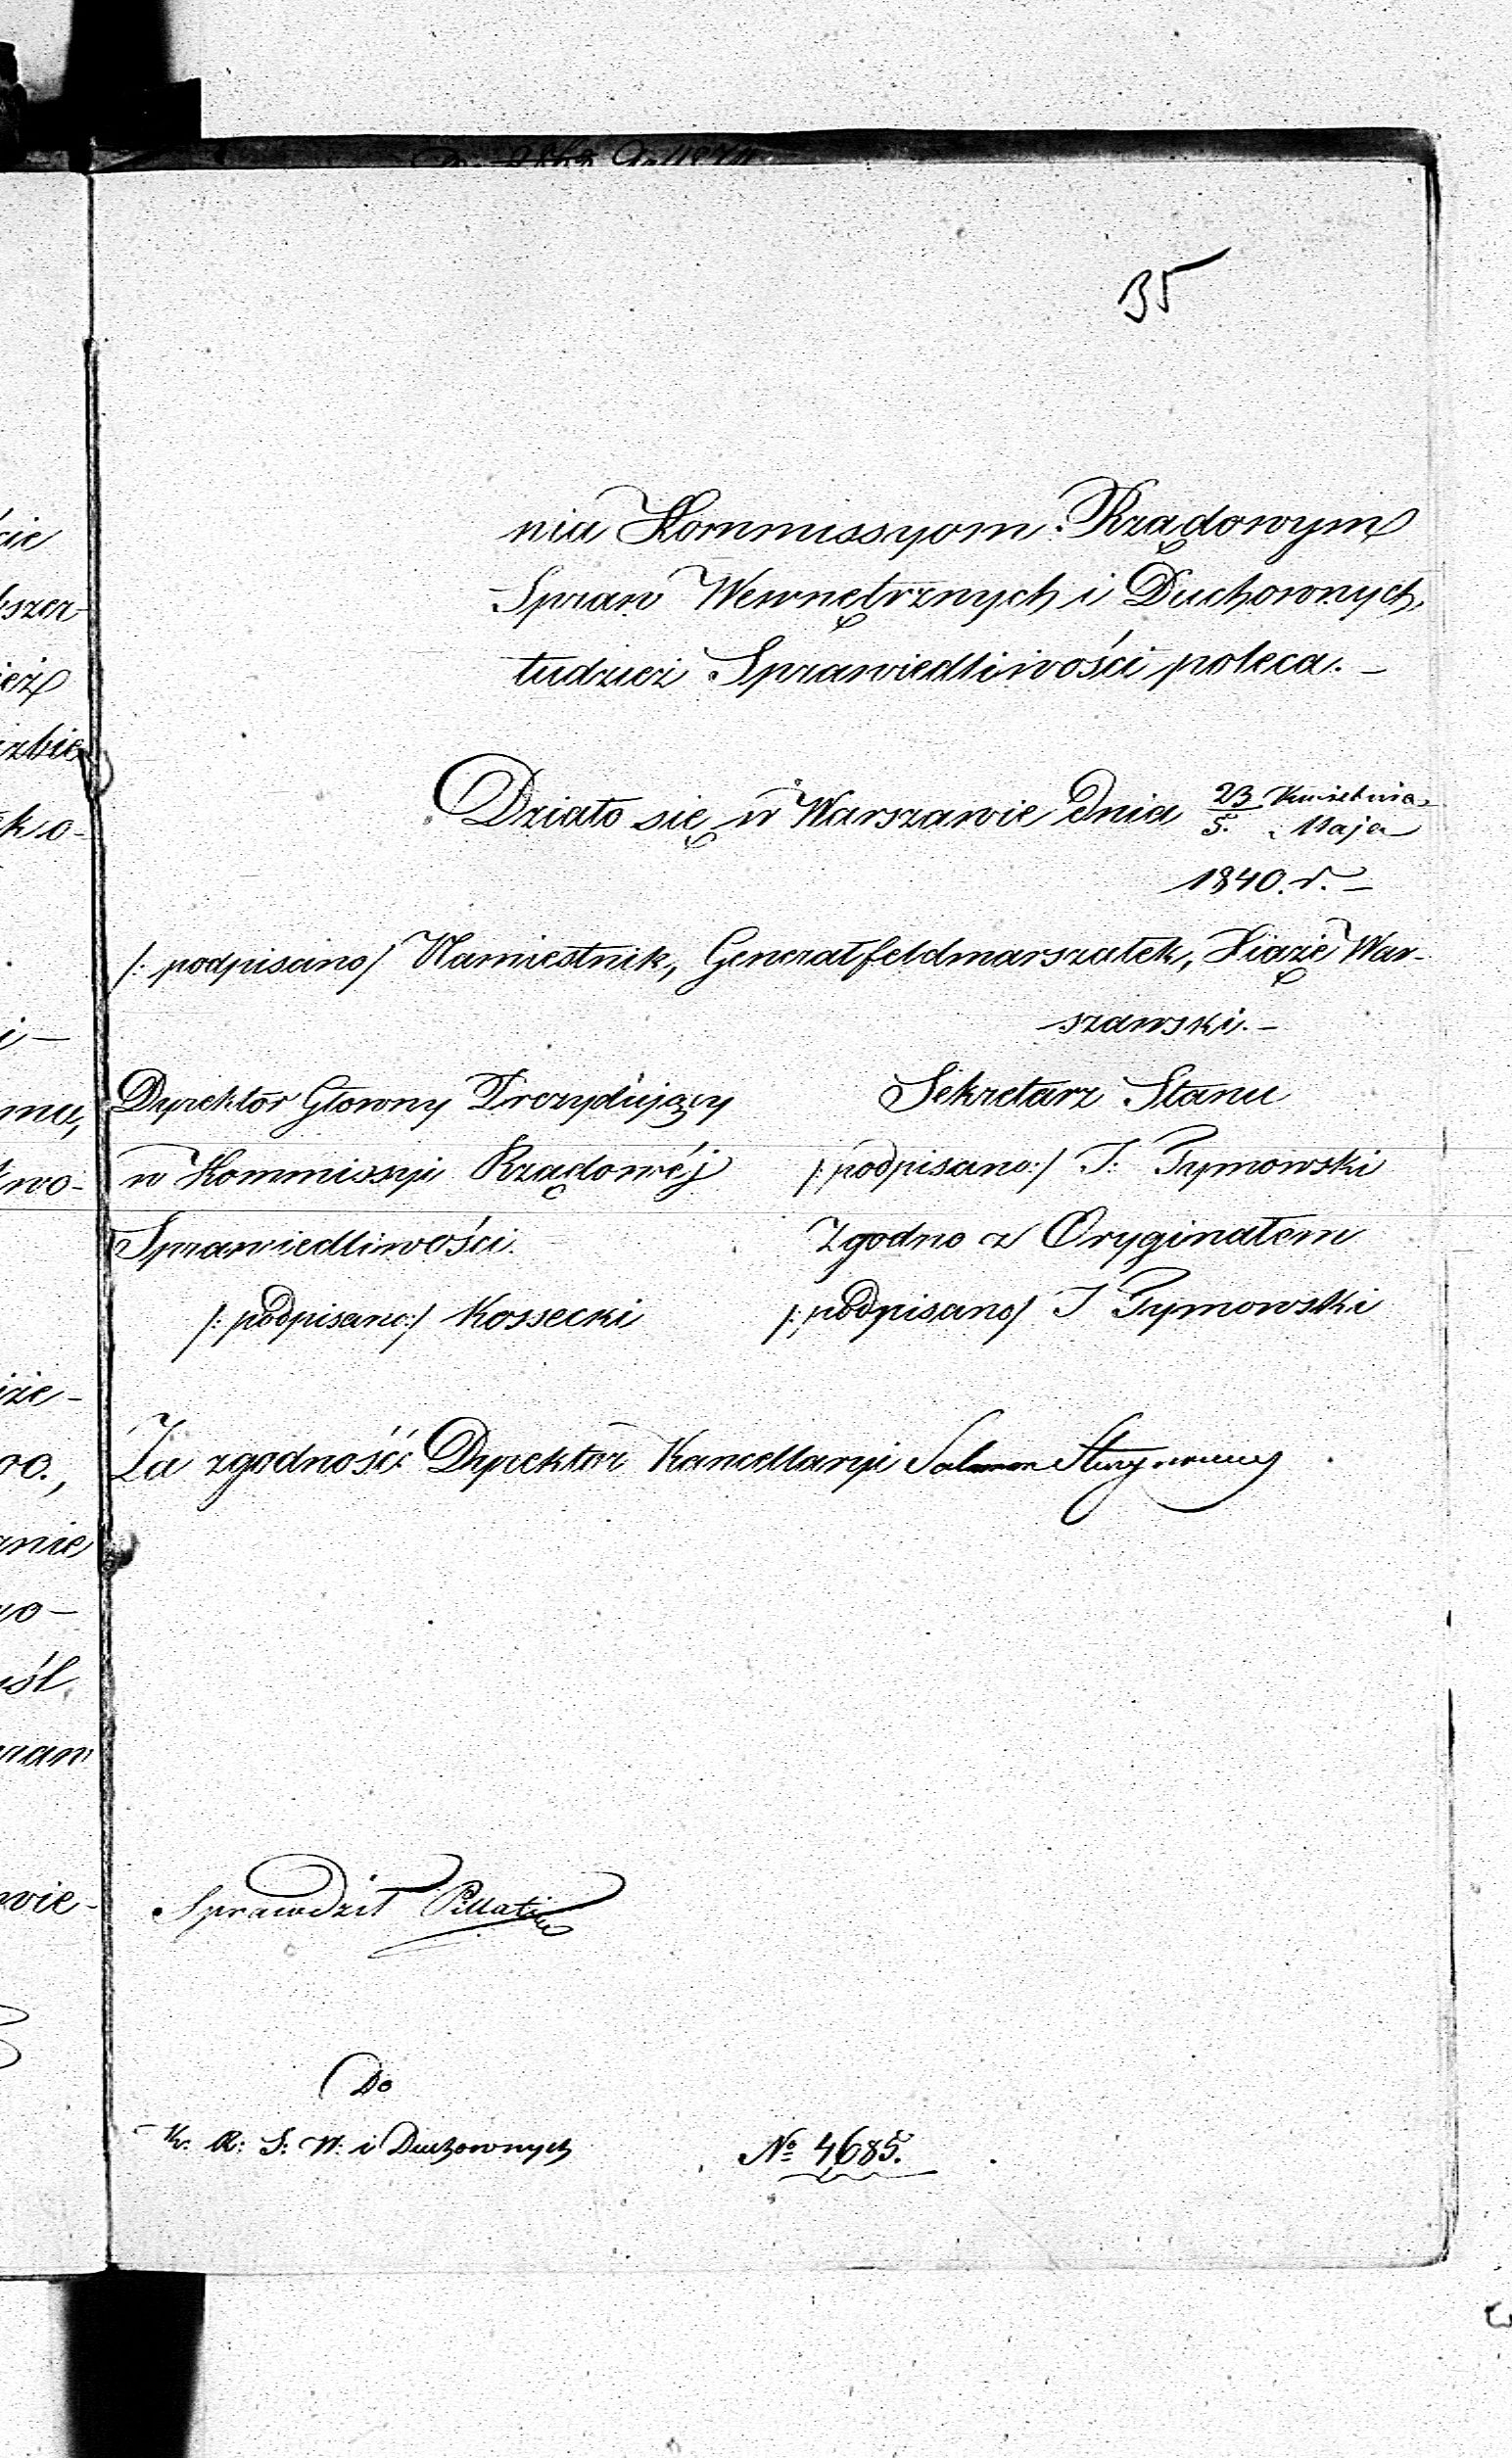 35
nia Kommissyom Rządowym
Spraw Wewnętrznych i Duchownych,
tudzież Sprawiedliwości poleca. –
Działo się w Warszawie dnia 23 Kwietnia
5. Maja
1840. r. –
/: podpisano/ Namiestnik, Generałfeldmarszałek, Xiąże War-
szawski. –
Dyrektor Głowny Prezydujący
w Kommissyi Rządowéj
Sprawiedliwości.
/: podpisano:/ Kossecki
Sekretarz Stanu
/: podpisano:/ J: Tymowski
Zgodno z Oryginałem
/: podpisano/ J Tymowski
Za zgodność: Dyrektor Kancellaryi
Sprawdził
Do
K: R: S: W: i Duchownych
№ 4685.
cie
bszer-
ież
zbie
ko-
i –
ma,
wo-
iże-
00.,
anie
wo-
śl
raw
wie-